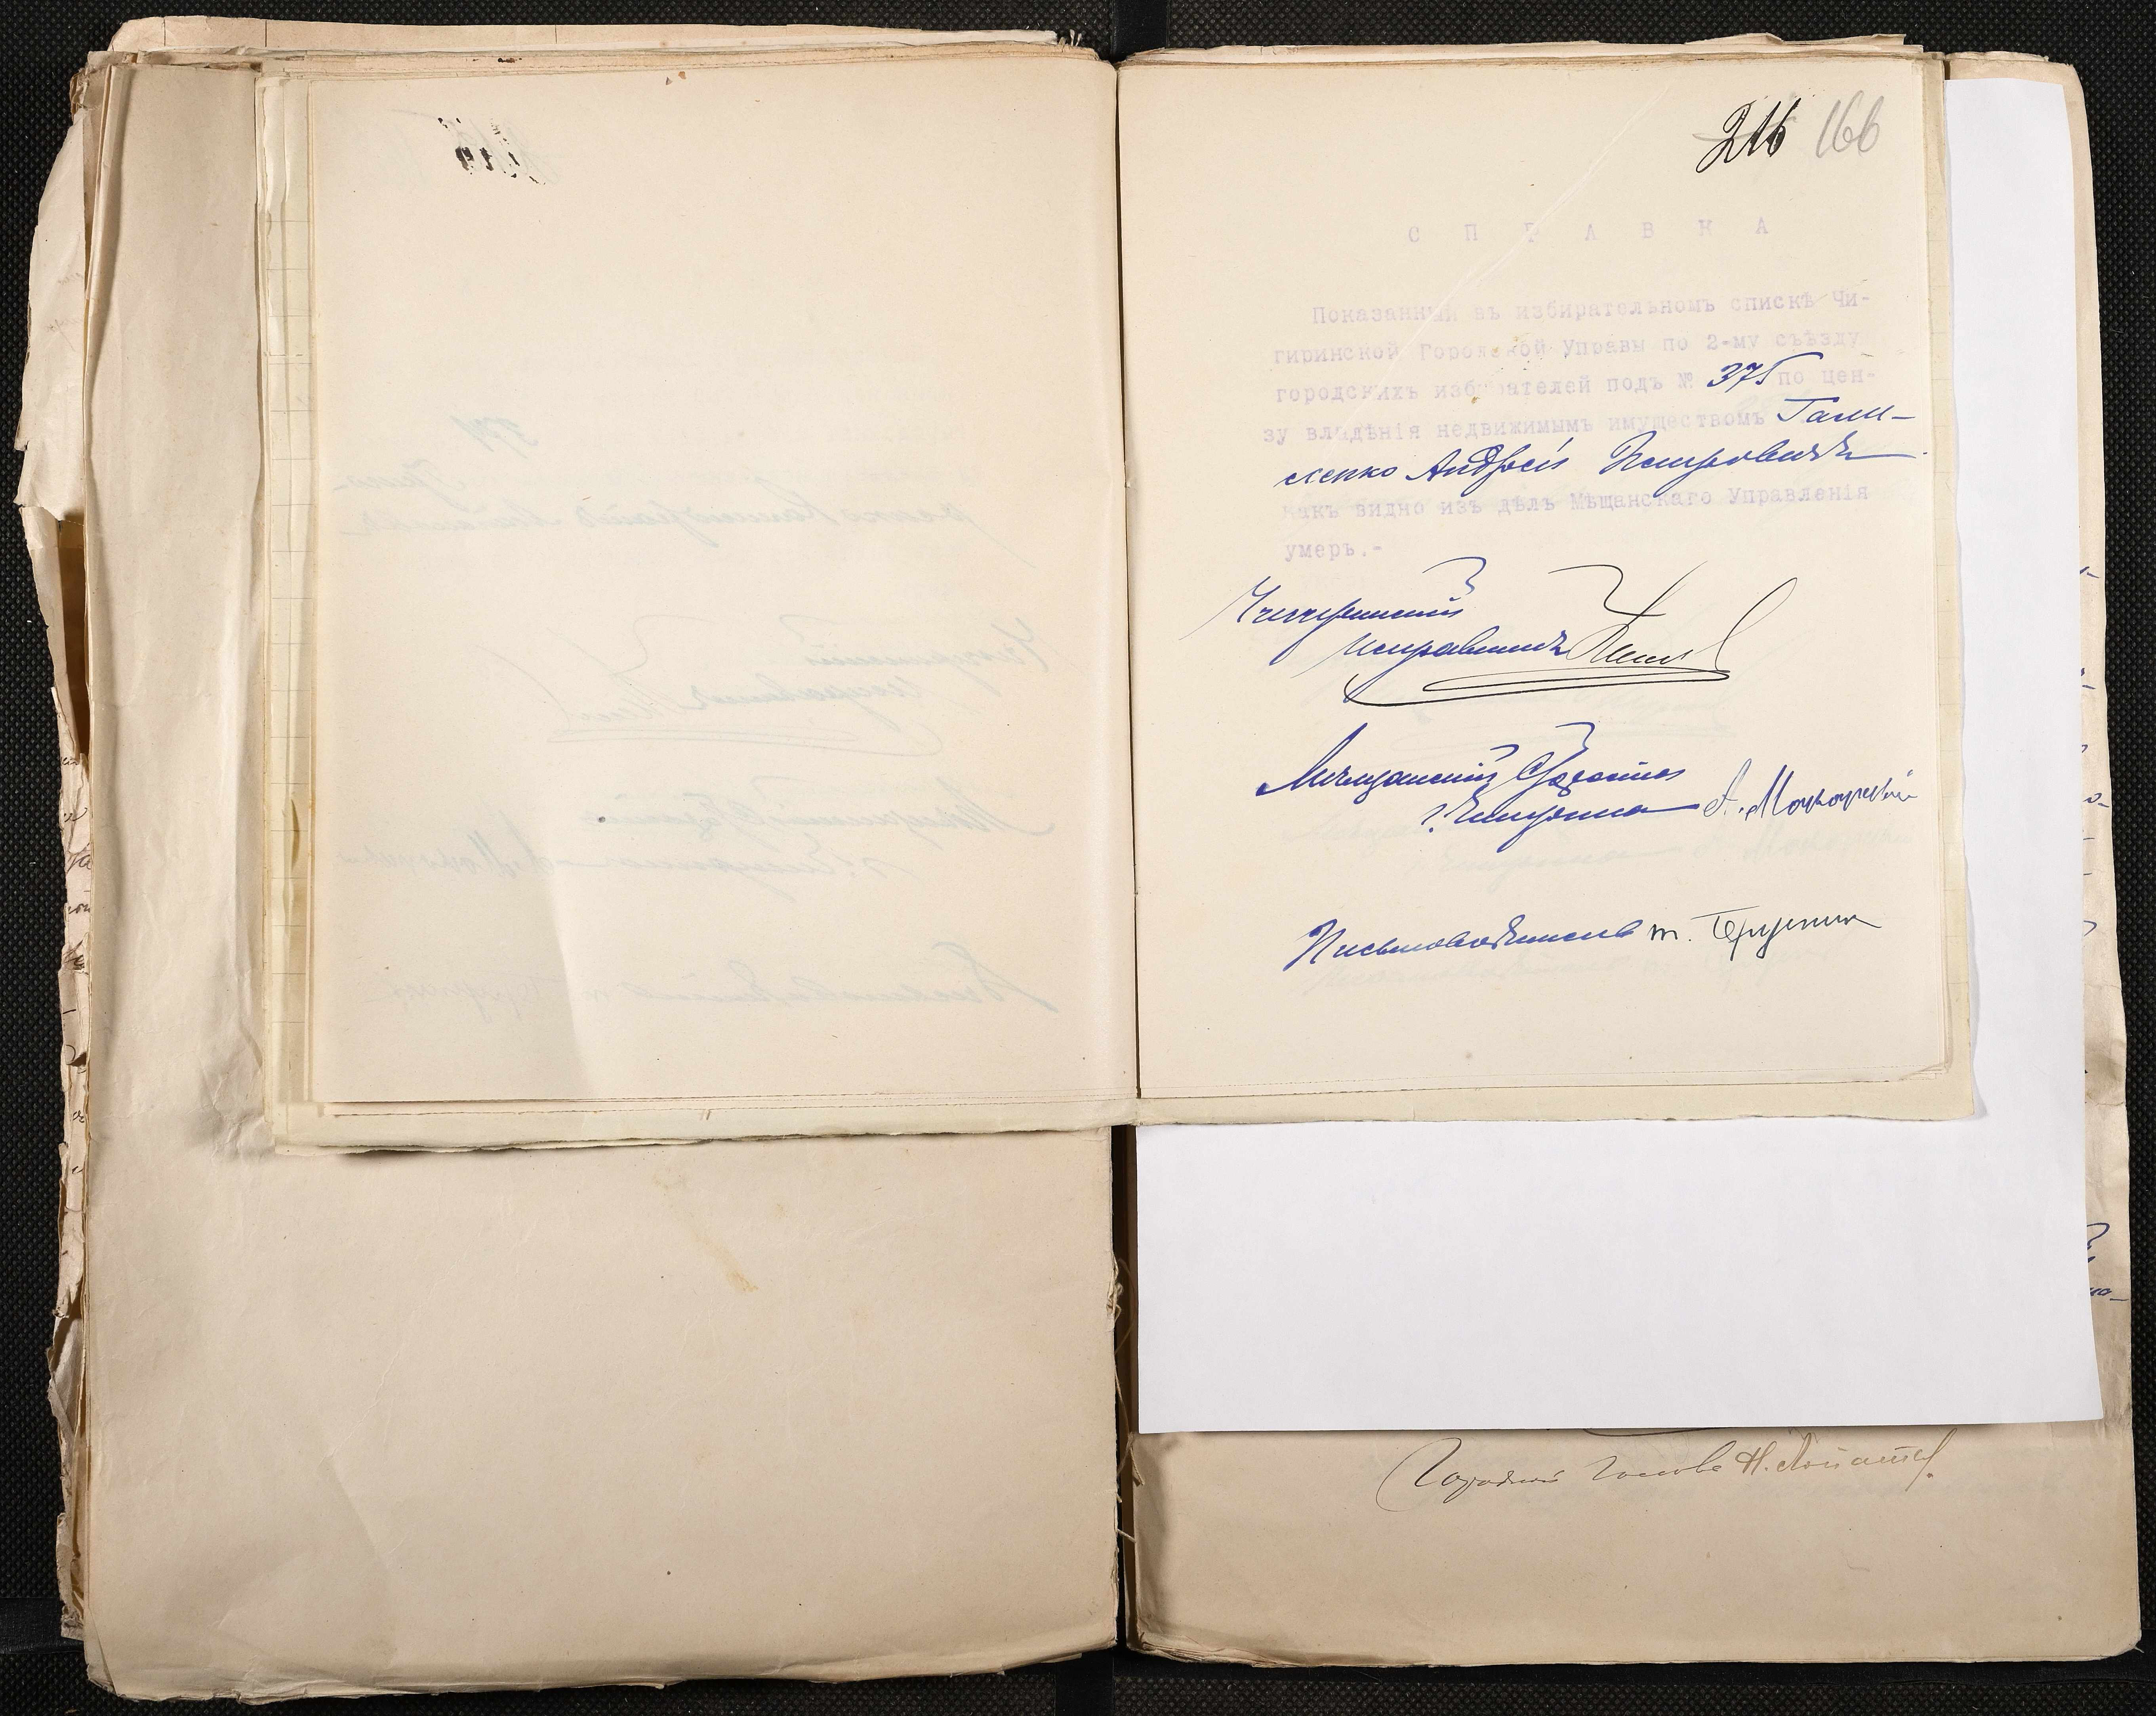 216 166
С П Р А В К А
Показанный въ избирательномъ спискѣ Чи-
гиринской Городской Управы по 2-му съѣзду
городскихъ избирателей подъ № 375 по цен-
зу владѣнія недвижимымъ имуществомъ
Андрей Петровичъ
какъ видно изъ дѣлъ Мѣщанскаго Управленія
умеръ.-
Чигиринскій
Исправникъ
Мѣщанскій Староста
г. Чигирина
Письмоводитель
Городской Голова Н.